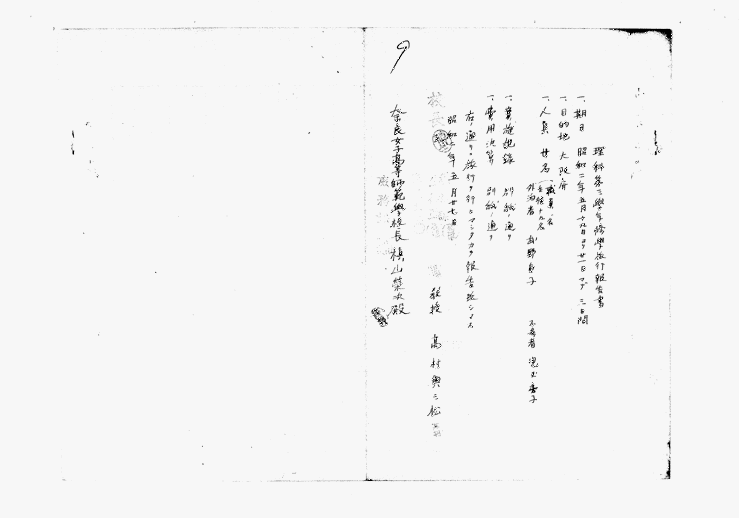 9
理科第三學年修學旅行報告書
一、期日　昭和二年五月十九日ヨリ廿一日マデ三日間
一、目的地　大阪府
一、人員　廿名
職員一名
生徒十九名
外泊者
不参者　児玉
一、實施記録　別紙ノ通リ
一、費用決算　別紙ノ通リ
右ノ通リ旅行ヲ行ヒマシタカラ報告致シマス
昭和二年五月廿七日
教授　高村與三松
奈良女子高等師範學校長槇山榮次殿
校長